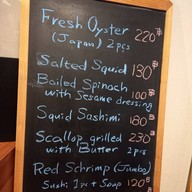 Fresh Oyster 220฿
(Japan) 2pcs
Salted Squid 130฿
Boiled Spinach 100฿
with Sesame dressing
Squid Sashimi 180฿
Scallop grilled 230฿
with Butter 2pcs
Red Schrimp (Jumbo)
Sushi 1pc + Soup 120฿